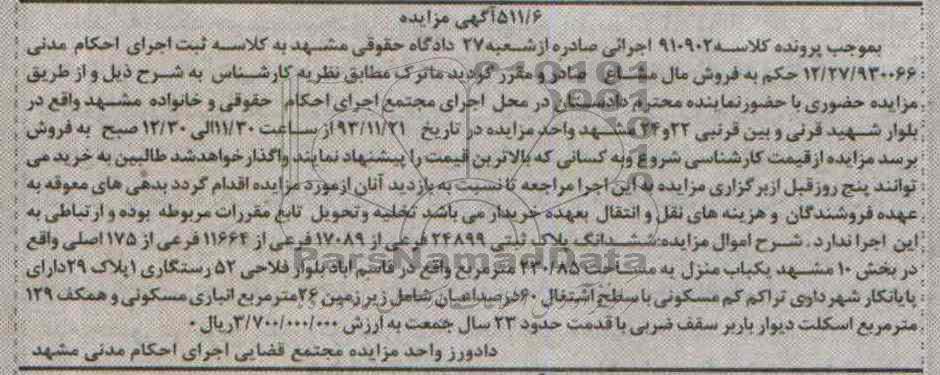 ۵۱۱/۶آگهی مزایده
بموجب پرونده کلاسه۹۱۰۹۰۲ اجرائی صادره ازشعبه۲۷ دادگاه حقوقی مشهد به کلاسه ثبت اجرای احکام مدنی
۱۲/۲۷/۹۳۰۰۶۶ حکم به فروش مال مشاع صادر و مقرر گردید ماترک مطابق نظریه کارشناس به شرح ذیل و از طریق
مزایده حضوری با حضورنماینده محترم دادستان در محل اجرای مجتمع اجرای احکام حقوقی و خانواده مشهد واقع در
بلوار شهید قرنی و بین قرنیی ۲۲و۲۴ مشهد واحد مزایده در تاریخ ۹۳/۱۱/۲۱ از ساعت ۱۱/۳۰الی ۱۲/۳۰ صبح به فروش
برسد مزایده ازقیمت کارشناسی شروع وبه کسانی که بالاترین قیمت را پیشنهاد نمایند واگذارخواهدشد طالبین به خرید می
توانند پنج روزقبل ازبرگزاری مزایده به این اجرا مراجعه تانسبت به بازدید آنان ازمورد مزایده اقدام گردد بدهی های معوقه به
عهده فروشندگان و هزینه های نقل و انتقال بعهده خریدار می باشد تخلیه وتحویل تابع مقررات مربوطه بوده و ارتباطی به
این اجرا ندارد . شرح اموال مزایده:ششدانگ پلاک ثبتی ۲۴۸۹۹ فرعی از ۱۷۰۸۹ فرعی از ۱۱۶۶۴ فرعی از ۱۷۵ اصلی واقع
در بخش ۱۰ مشهد یکباب منزل به مساحت ۲۳۰/۸۵ مترمربع واقع در قاسم اباد بلوار فلاحی ۵۲ رستگاری ۱پلاک ۲۹دارای
پایانکار شهرداری تراکم کم مسکونی با سطح اشتغال ۶۰درصداعیان شامل زیر زمین ۲۶مترمربع انباری مسکونی و همکف ۱۲۹
مترمربع اسکلت دیوار باربر سقف ضربی با قدمت حدود ۲۳ سال جمعت به ارزش ۳/۷۰۰/۰۰۰/۰۰۰ریال ۰
دادورز واحد مزایده مجتمع قضایی اجرای احکام مدنی مشهد
ParsNamadData